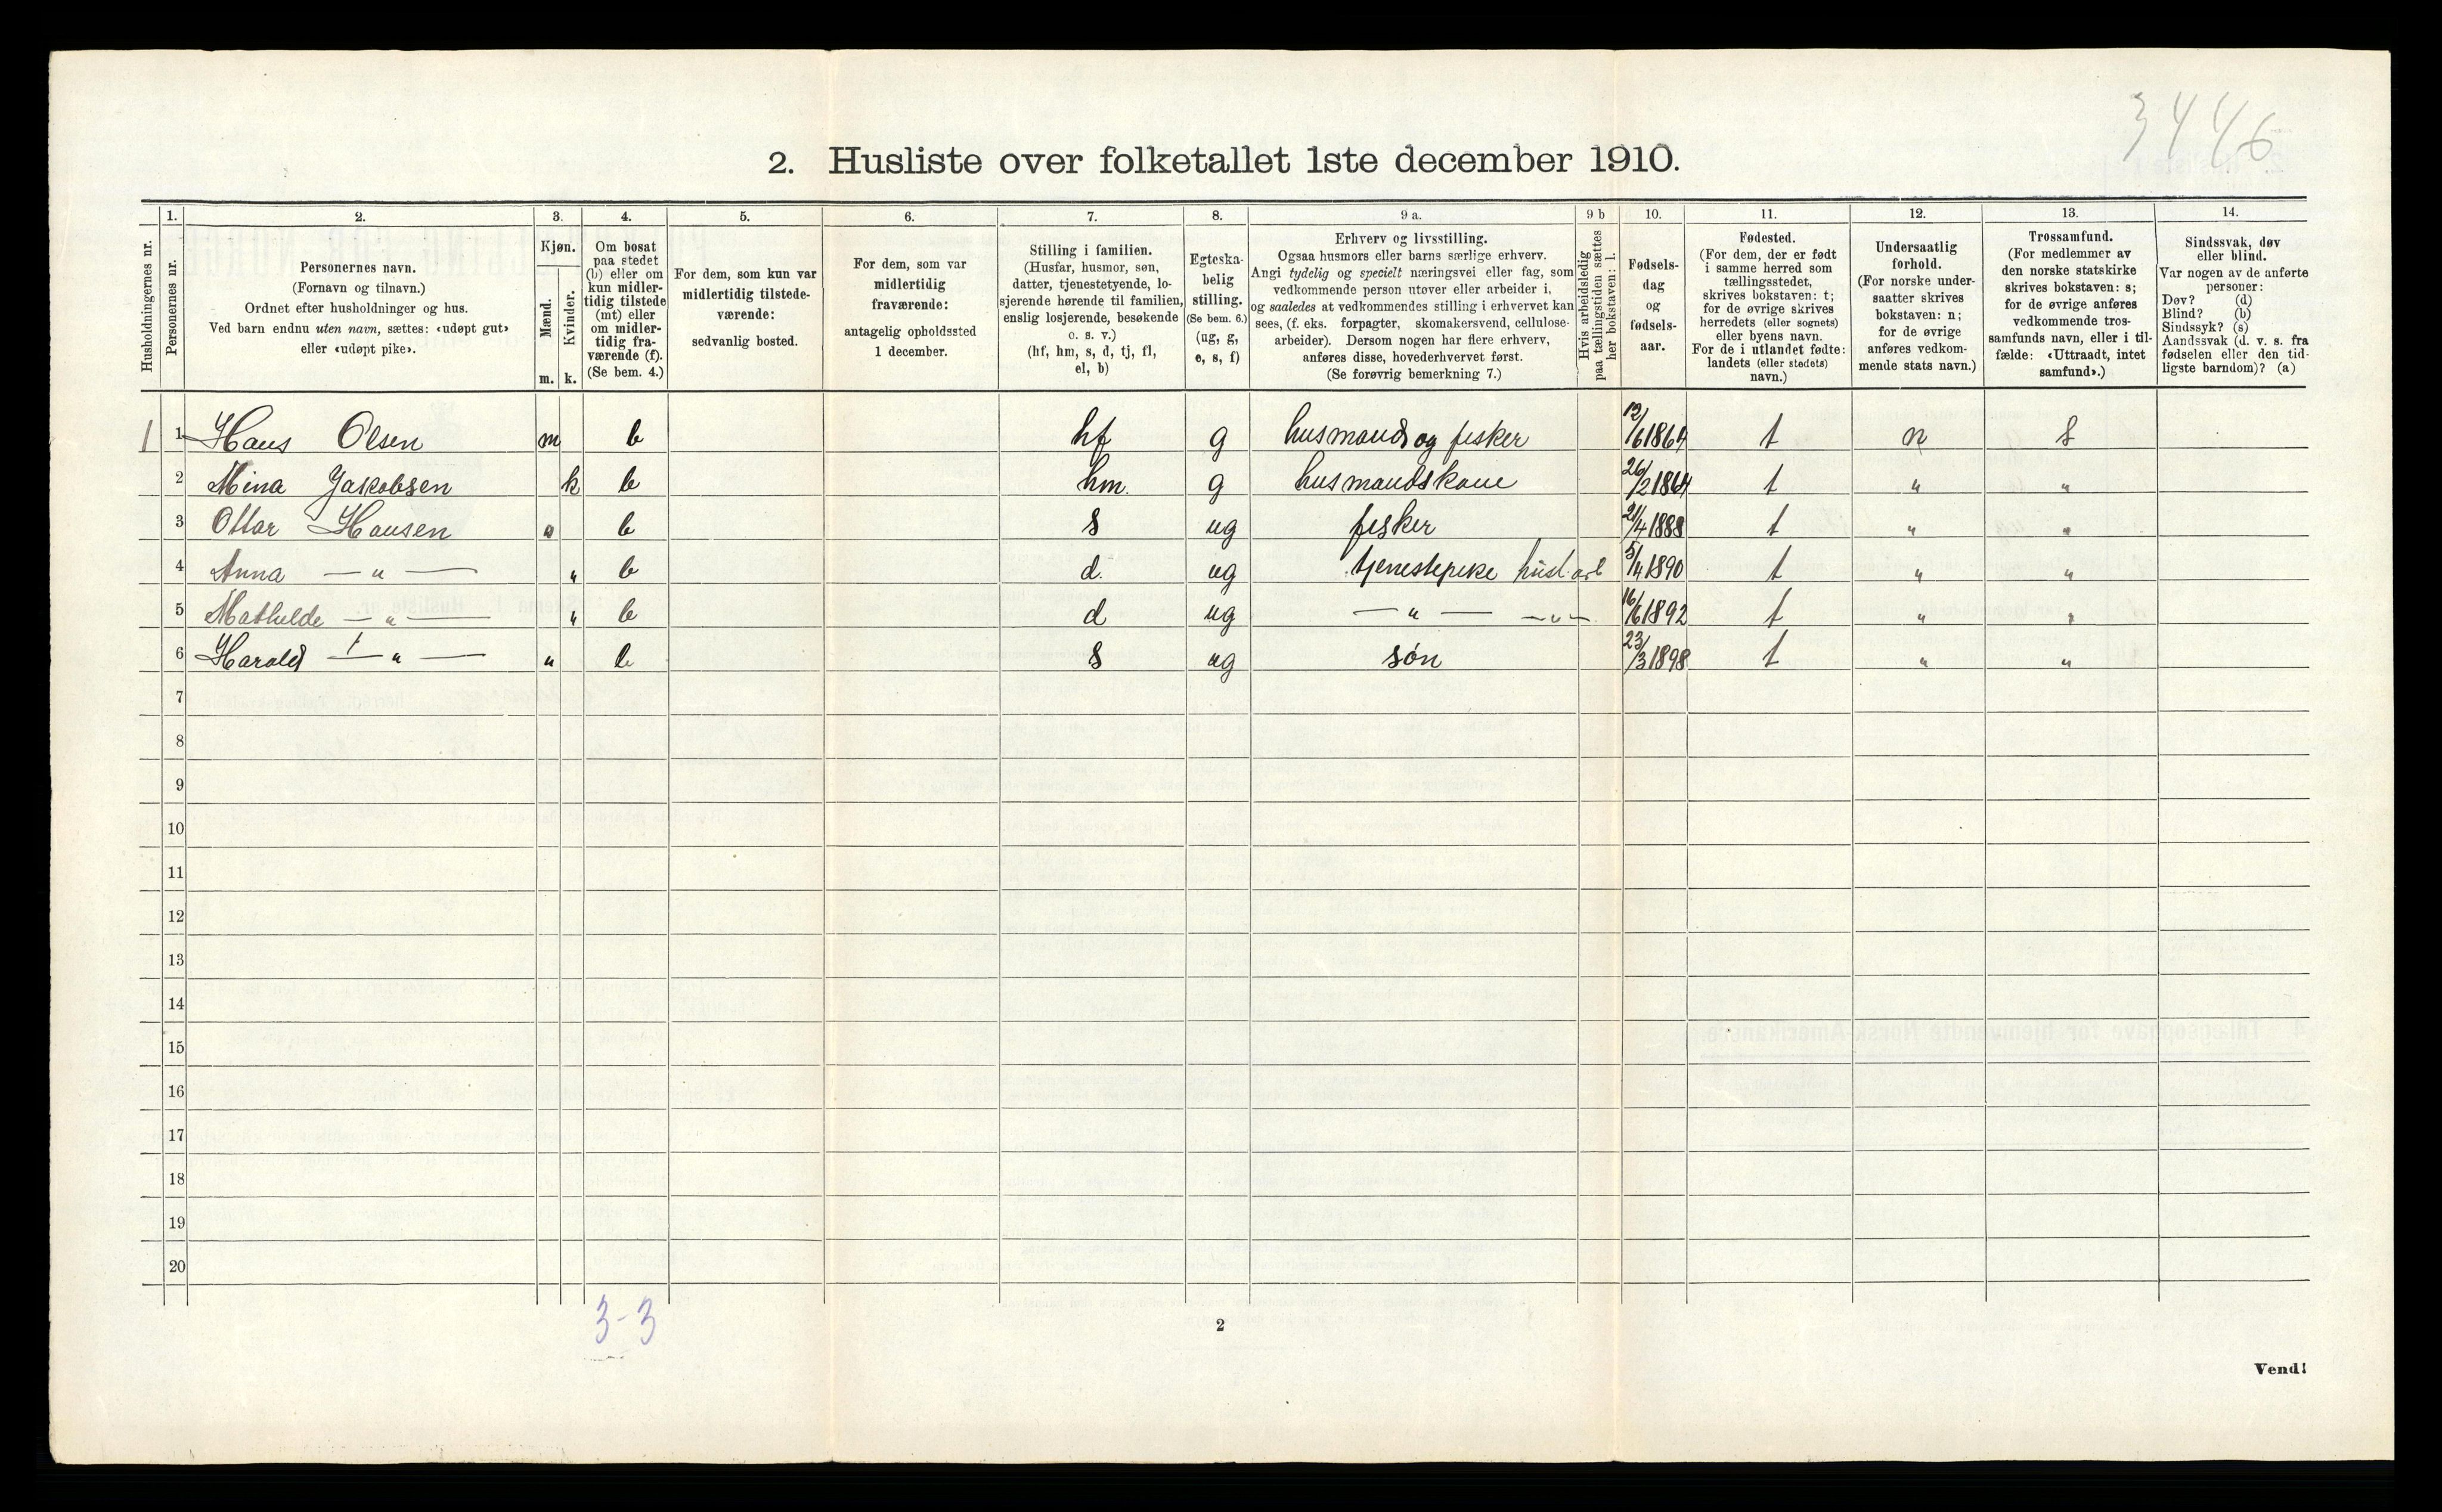 3446
2. Husliste over folketallet 1ste december 1910.
Husholdningernes nr.
1.
Personernes nr.
2.
Personernes navn.
(Fornavn og tilnavn.)
Ordnet efter husholdninger og hus.
Ved barn endnu uten navn, sættes: «udøpt gut»
eller «udøpt pike».
3.
Kjøn.
Mænd.
Kvinder.
m. k.
4.
Om bosat
paa stedet
(b) eller om
kun midler-
tidig tilstede
(mt) eller
om midler-
tidig fra-
værende (f).
(Se bem. 4.)
5.
For dem, som kun var
midlertidig tilstede-
værende:
sedvanlig bosted.
6.
For dem, som var
midlertidig
fraværende:
antagelig opholdssted
1 december.
7.
Stilling i familien.
(Husfar, husmor, søn,
datter, tjenestetyende, lo-
sjerende hørende til familien,
enslig losjerende, besøkende
o. s. v.)
(hf, hm, s, d, tj, fl,
el, b)
8.
Egteska-
belig
stilling.
(Se bem. 6.)
(ug, g,
e, s, f)
9 a.
Erhverv og livsstilling.
Ogsaa husmors eller barns særlige erhverv.
Angi tydelig og specielt næringsvei eller fag, som
vedkommende person utøver eller arbeider i,
og saaledes at vedkommendes stilling i erhvervet kan
sees, (f. eks. forpagter, skomakersvend, cellulose-
arbeider). Dersom nogen har flere erhverv,
anføres disse, hovederhvervet først.
(Se forøvrig bemerkning 7.)
9 b
Hvis arbeidsledig
paa tællingstiden sættes
her bokstaven: l.
10.
Fødsels-
dag
og
fødsels-
aar.
11.
Fødested.
(For dem, der er født
i samme herred som
tællingsstedet,
skrives bokstaven: t;
for de øvrige skrives
herredets (eller sognets)
eller byens navn.
For de i utlandet fødte:
landets (eller stedets)
navn.)
12.
Undersaatlig
forhold.
(For norske under-
saatter skrives
bokstaven: n;
for de øvrige
anføres vedkom-
mende stats navn.)
13.
Trossamfund.
(For medlemmer av
den norske statskirke
skrives bokstaven: s;
for de øvrige anføres
vedkommende tros-
samfunds navn, eller i til-
fælde: «Uttraadt, intet
samfund».)
14.
Sindssvak, døv
eller blind.
Var nogen av de anførte
personer:
Døv? (d)
Blind? (b)
Sindssyk? (s)
Aandssvak (d. v. s. fra
fødselen eller den tid-
ligste barndom)? (a)
1 1 Hans Olsen m b hf g husmand og fisker 12/6 1864 t n s
2 Mina Jakobsen k b hm. g husmandskone 26/2 1864 t " "
3 Ottar Hansen " b s ug fisker 21/4 1888 t " "
4 Anna — " — " b d. ug tjenestepike husl. arb 5/4 1890 t " "
5 Mathilde — " — " b d ug — " — — " — 16/6 1892 t " "
6 Harald — " — " b s ug søn 23/3 1898 t " "
7
8
9
10
11
12
13
14
15
16
17
18
19
20
3-3
2
Vend!